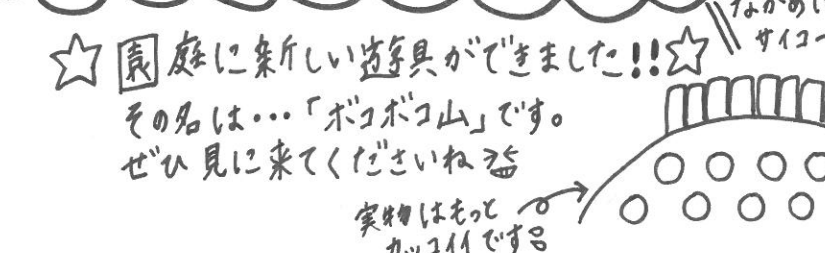 ながめ
サイコー
☆園庭に新しい遊具ができました!!☆
その名は…「ボコボコ山」です。
ぜひ見に来てくださいね
実物はもっと
カッコイイです